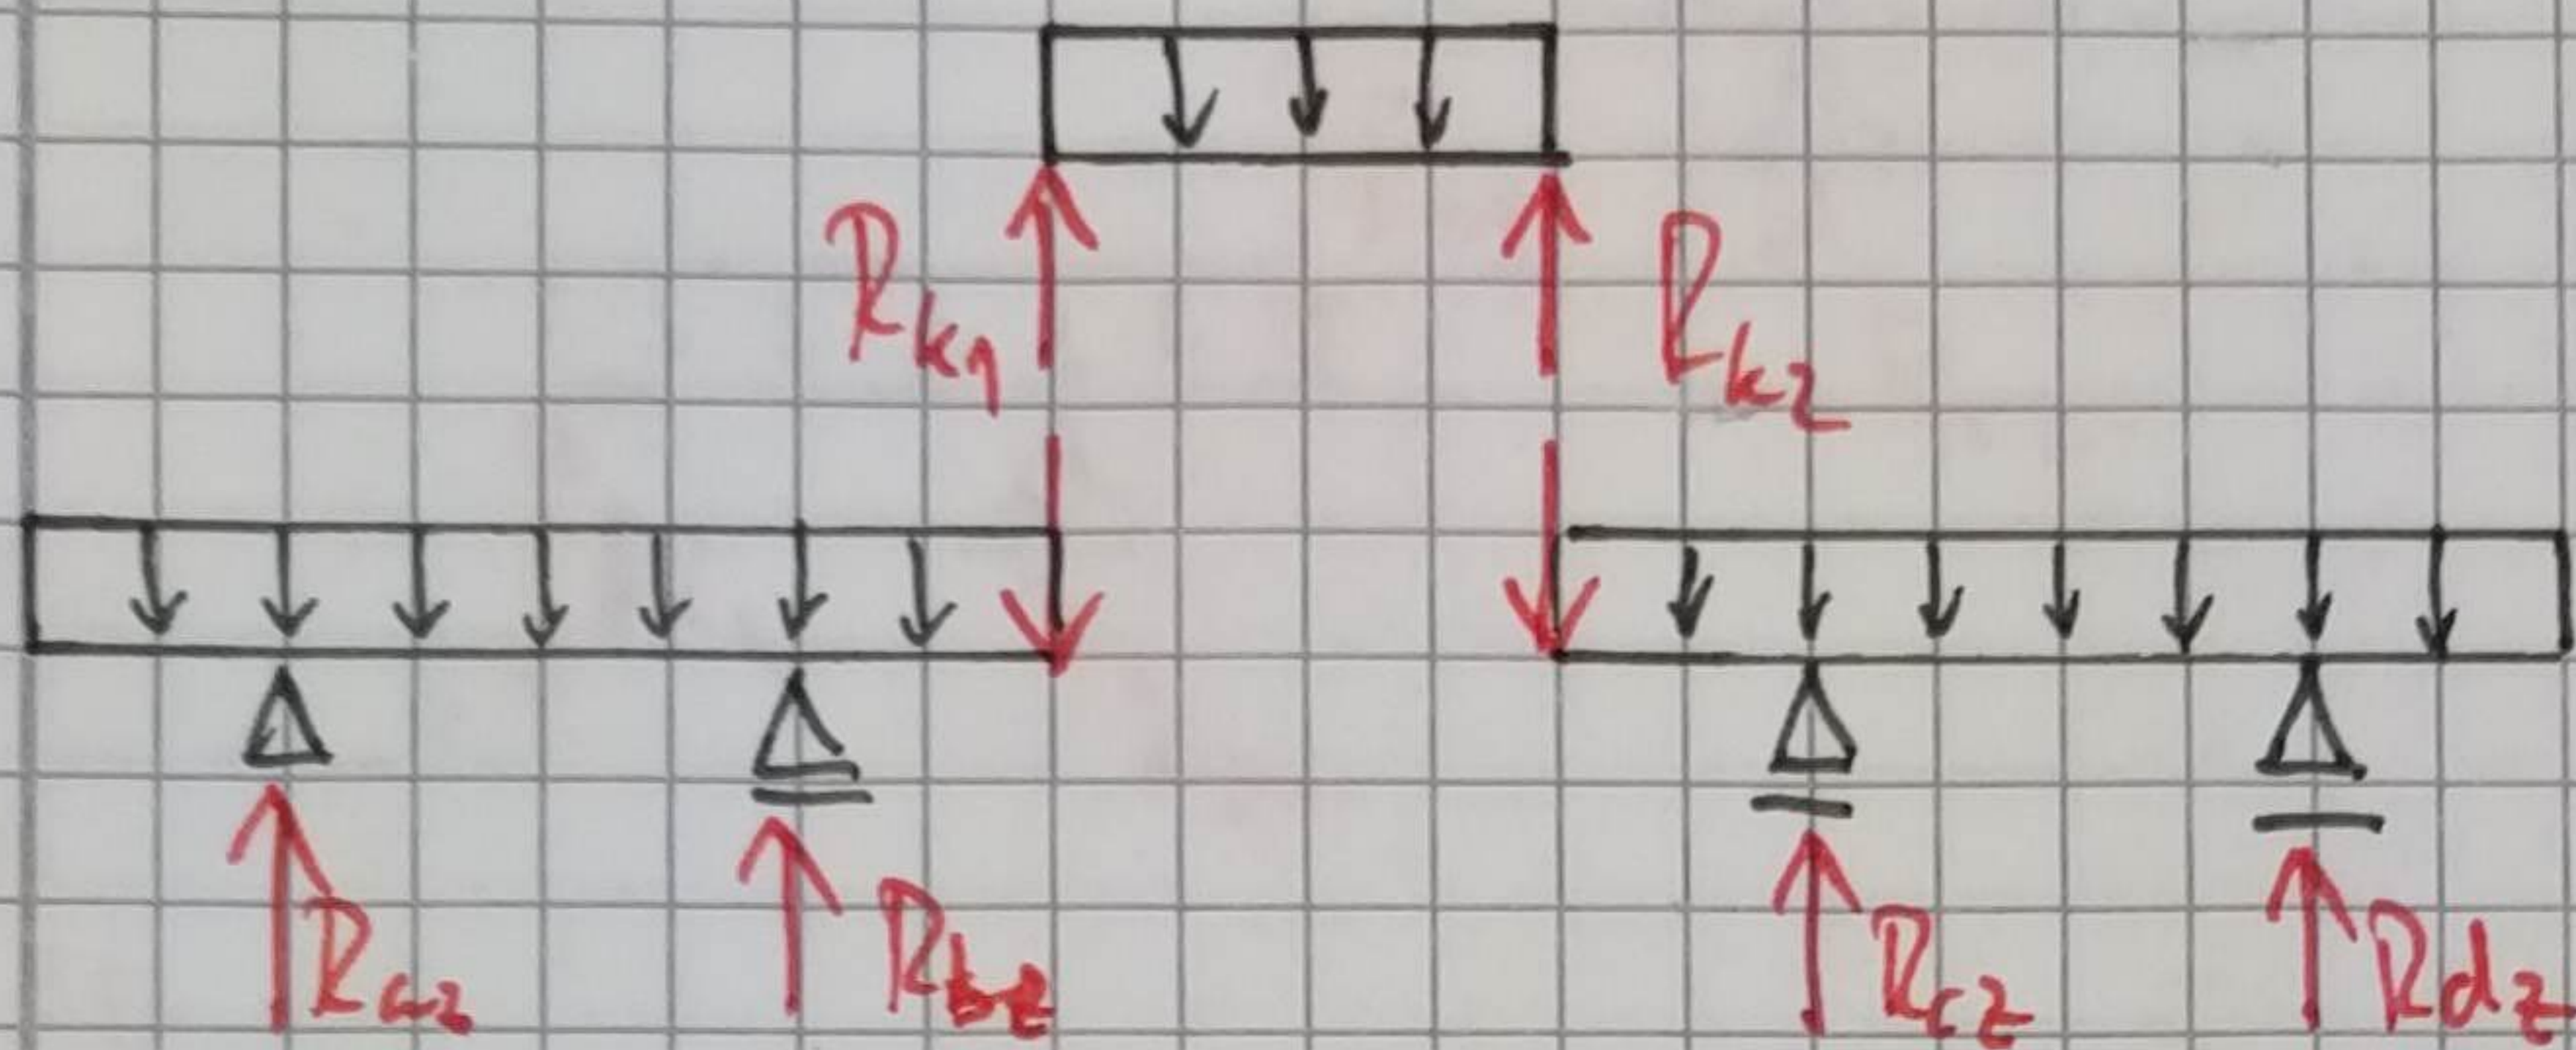 Rk1 Rk2
Raz Rbz Rcz Rdz